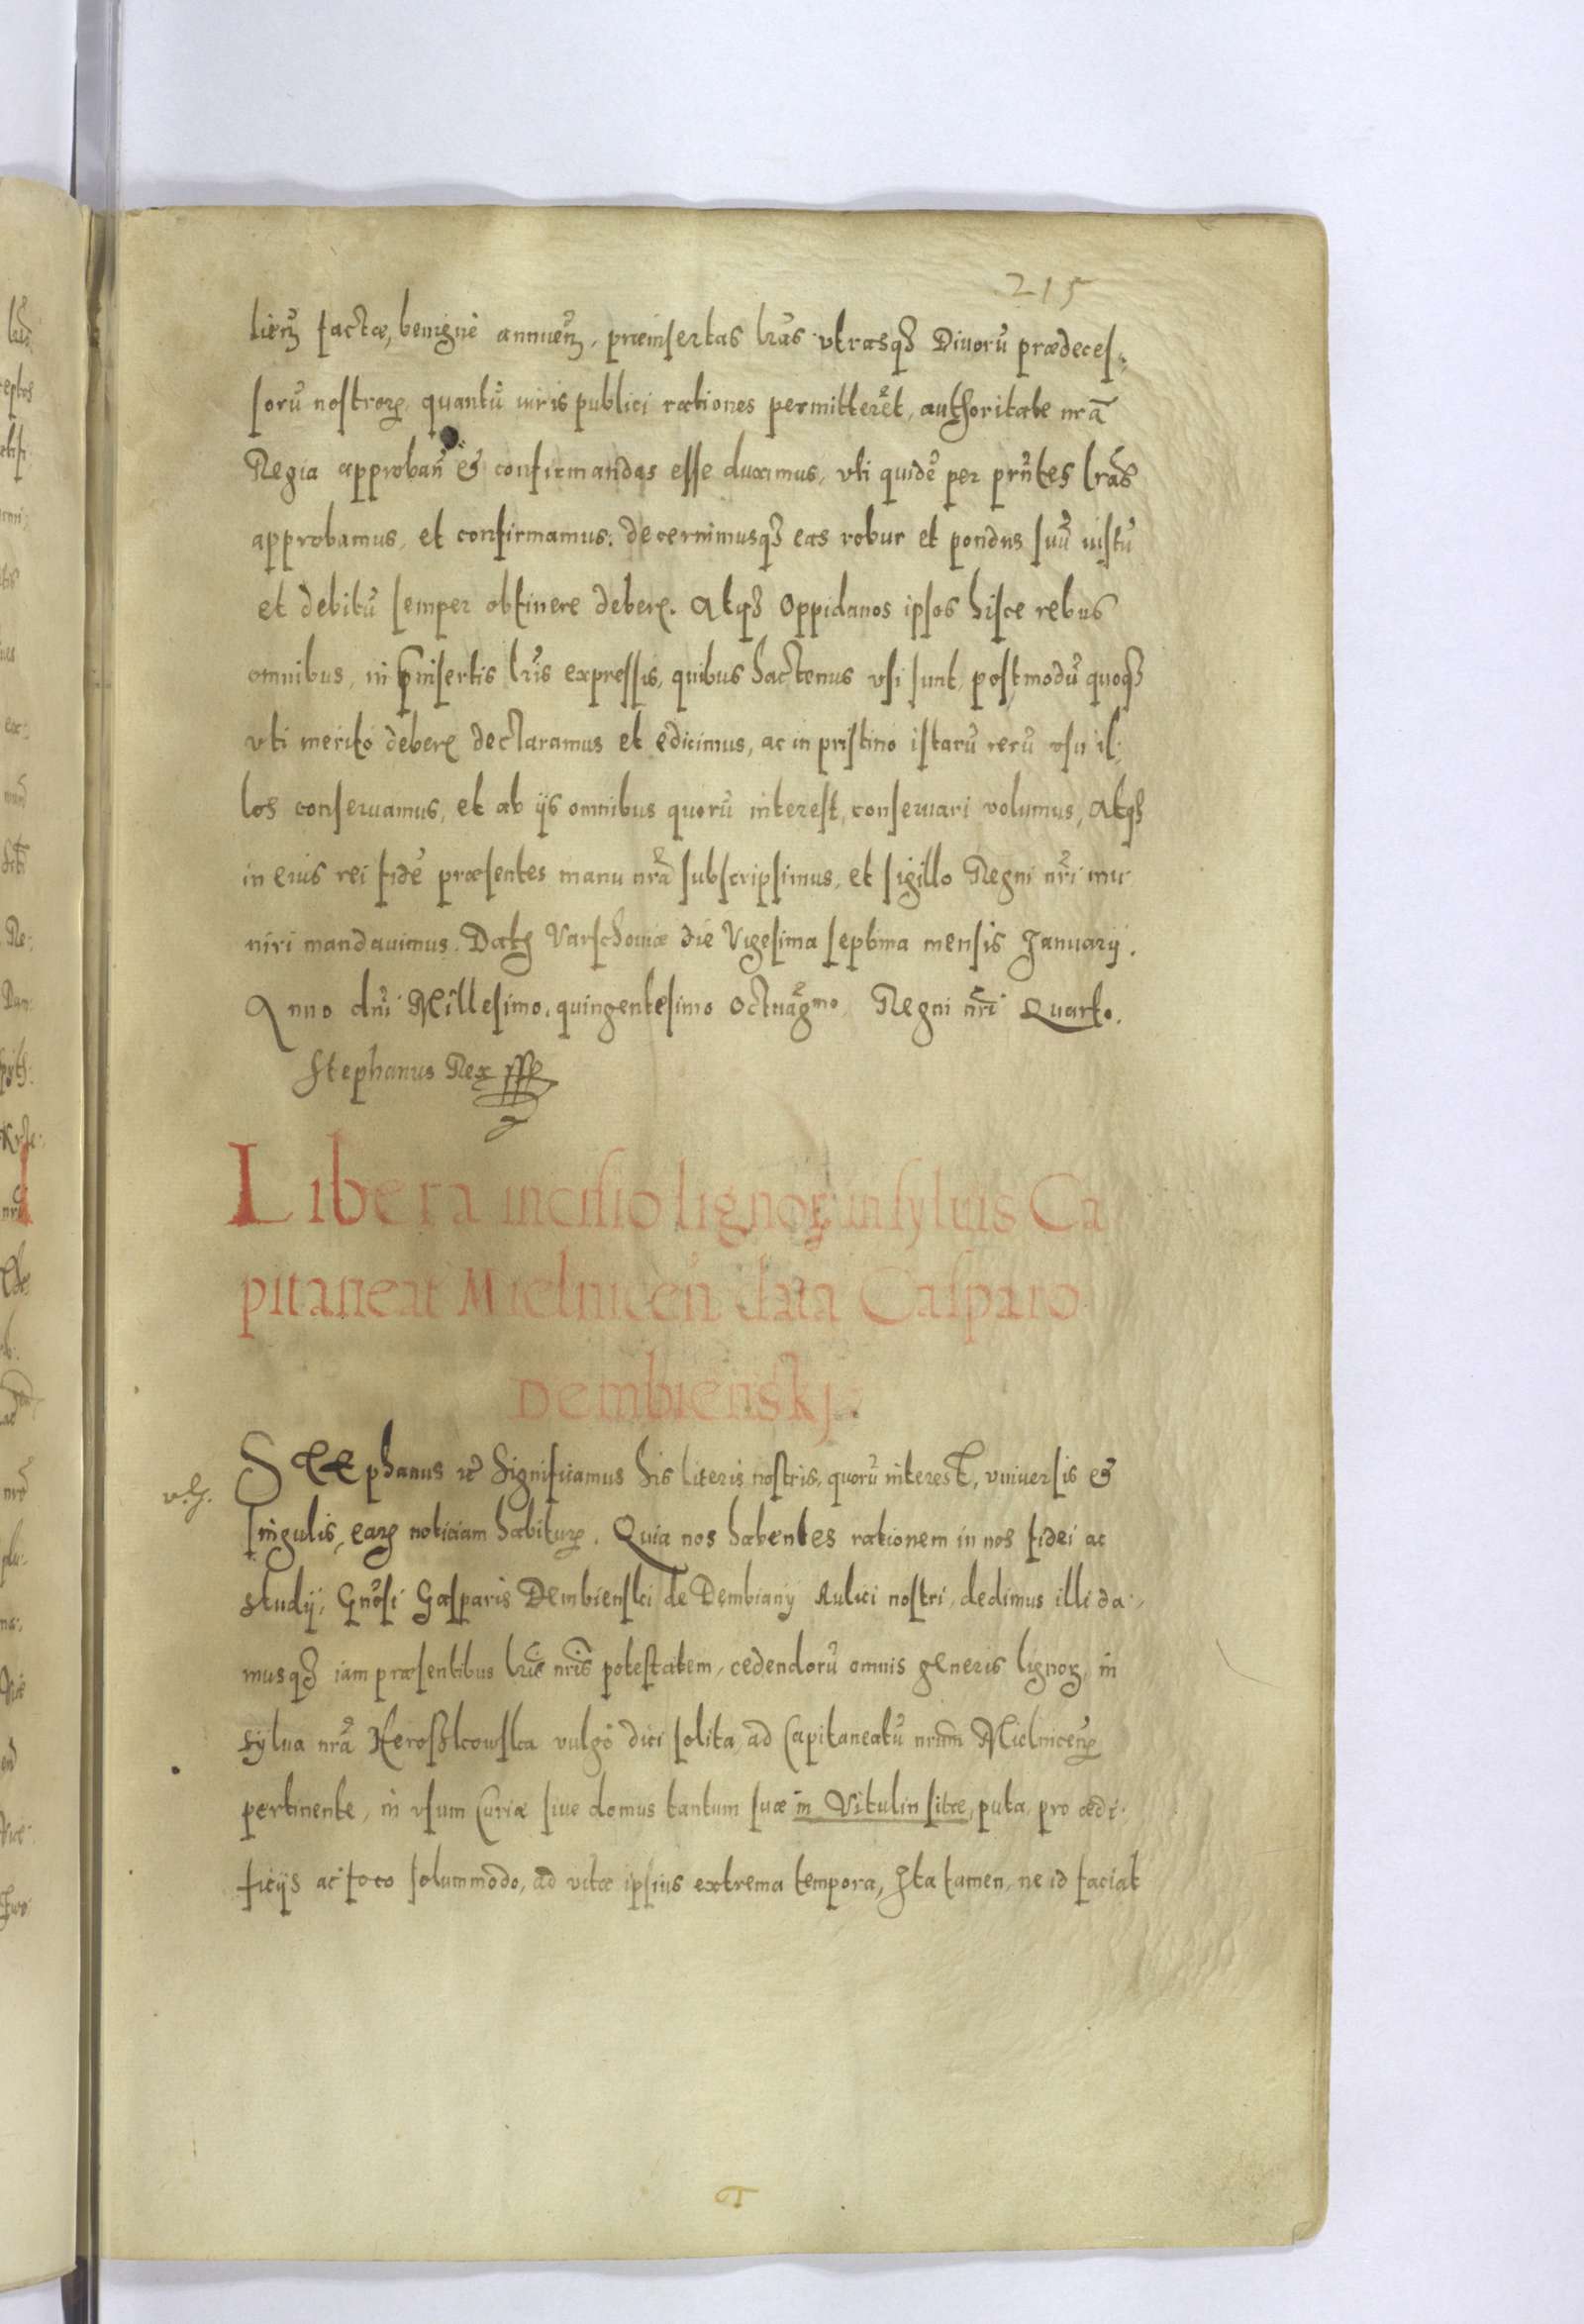 215
lienꝫ factæ, benignè annuenꝫ, præinsertas lr̃as vtrasqꝫ Diuorũ prædeces,
sorũ nostroꝝ quantũ iuris publici rationes permitterẽt, authoritate nr̃a
Regia approbañ et confirmandas esse duximus, vti quidẽ per pr̃ntes lr̃as
approbamus, et confirmamus: decernimusqꝫ eas robur et pondus suũ iustũ
et debitũ semper obtinere debere. Atqꝫ Oppidanos ipsos hisce rebus
omnibus, in p̃insertis lr̃is expressis, quibus hactenus vsi sunt, postmodũ quoqꝫ
vti meritò debere declaramus et edicimus, ac in pristino istarũ rerũ vsu il,
los conseruamus, et ab ijs omnibus quorũ interest, conseruari volumus, Atqꝫ
in eius rei fidẽ præsentes manu nr̃a subscripsimus, et sigillo Regni nr̃i mu
niri mandauimus. Datꝫ Varschouiæ die Vigesima septima mensis Januarij.
Anno dñi Millesimo, quingentesimo octuag̃mo, Regni nr̃i Quarto.
Stephanus Rex
Libera incisio lignoꝝ in syluis Ca
pitaneat Mielniceñ data Casparo
Dembienskj.
Stephanus rc̃ Significamus his literis nostris, quorũ interest, vniuersis et
singulis, eaꝝ noticiam habituꝝ. Quia nos habentes rationem in nos fidei ac
studij, Gñosi Gasparis Dembienski de Dembiany Aulici nostri, dedimus illi da,
musqꝫ iam præsentibus lr̃is nr̃is potestatem, cedendorũ omnis generis lignoꝝ, in
sylua nr̃a Kerosskowska vulgò dici solita, ad Capitaneatũ nr̃um Mielniceñ
pertinente, in vsum Curiæ siue domus tantum suæ in Vitulin sitæ, puta pro ædi
ficijs ac foco solummodo, ad vitæ ipsius extrema tempora, Ita tamen, ne id faciat